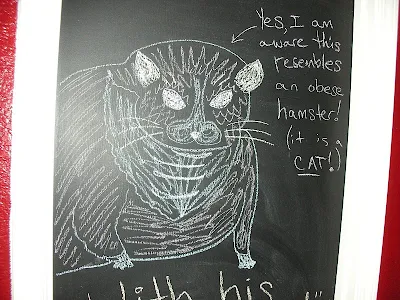 Yes, I am
aware this
resembles
an obese
hamster!
(it is a
CAT!)
With his